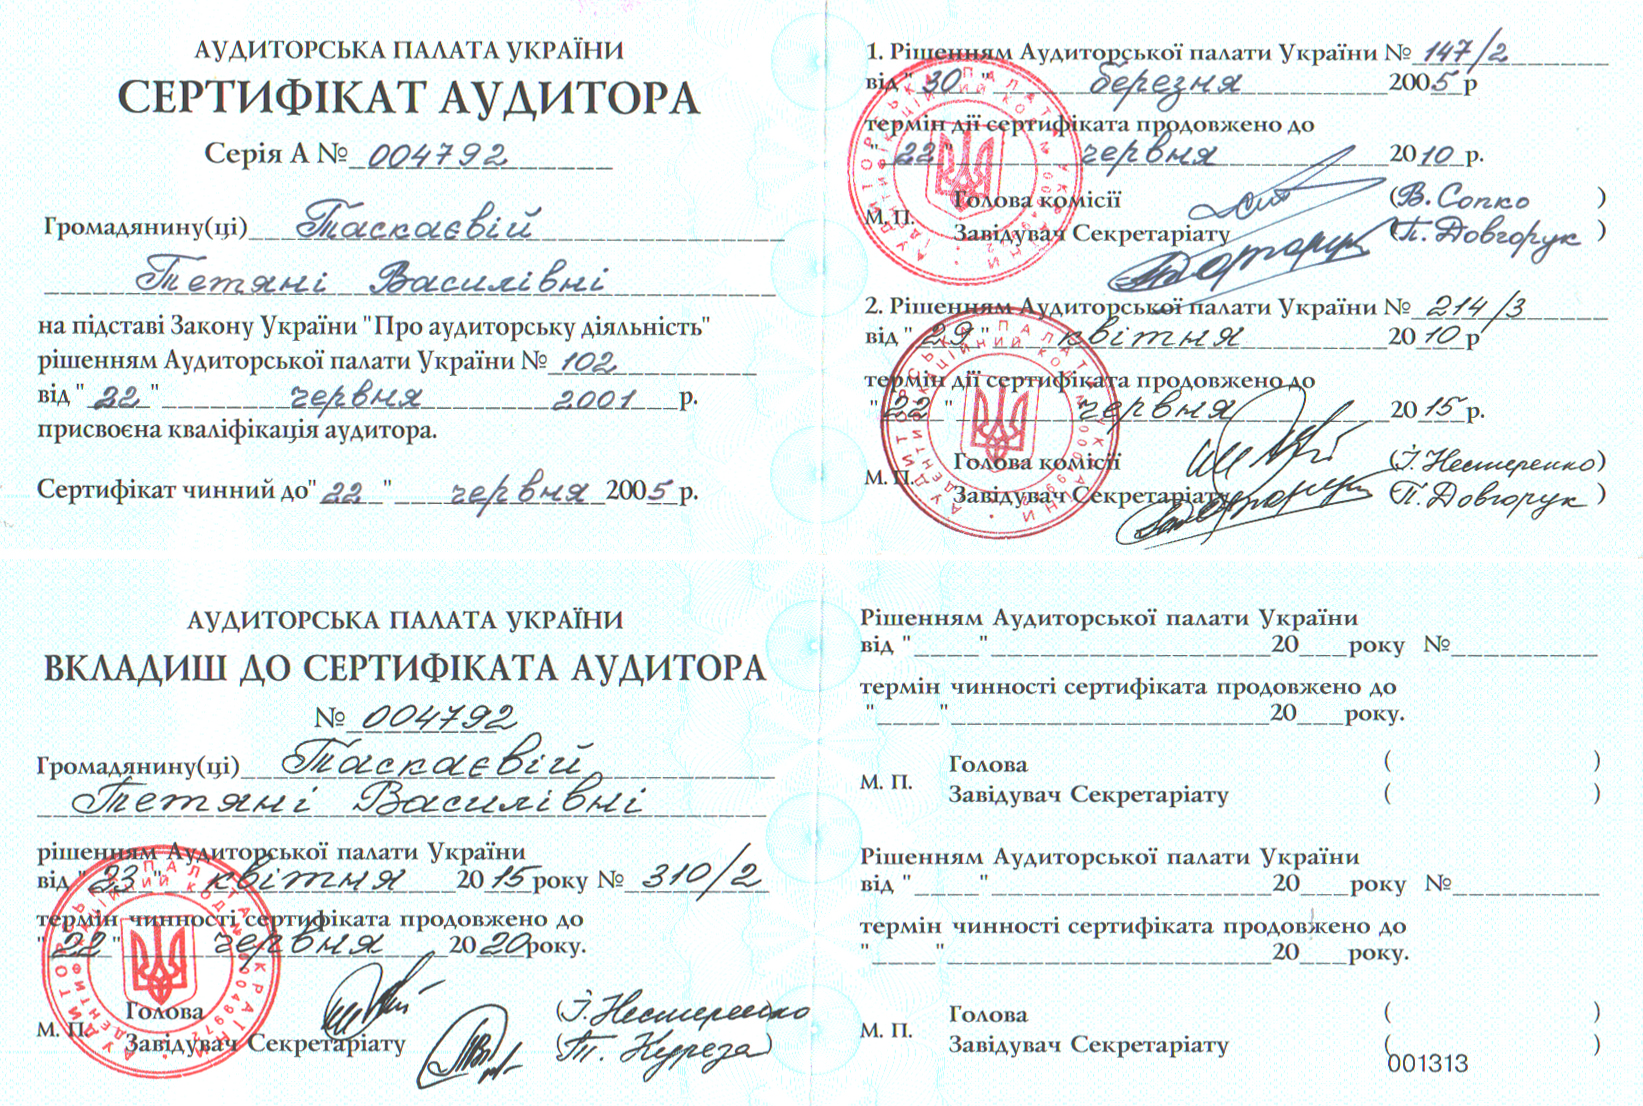 АУДИТОРСЬКА ПАЛАТА УКРАЇНИ
СЕРТИФІКАТ АУДИТОРА
Серія А № 004792
Громадянину(ці) Таскаєвій
Тетяні Василівні
на підставі Закону України "Про аудиторську діяльність"
рішенням Аудиторської палати України № 102
від " 22 " червня 2001 р.
присвоєна кваліфікація аудитора.
Сертифікат чинний до" 22 " червня 2005 р.
1. Рішенням Аудиторської палати України № 147/2
від " 30 " березня 2005 р
термін дії сертифіката продовжено до
" 22 " червня 2010 р.
Голова комісії (В. Сопко )
М. П.
Завідувач Секретаріату (П. Довгорук )
2. Рішенням Аудиторської палати України № 214/3
від " 29 " квітня 2010 р
термін дії сертифіката продовжено до
" 22 " червня 2015 р.
Голова комісії (І. Нестеренко)
М. П.
Завідувач Секретаріату (П. Довгорук )
АУДИТОРСЬКА ПАЛАТА УКРАЇНИ
ВКЛАДИШ ДО СЕРТИФІКАТА АУДИТОРА
№ 004792
Громадянину(ці) Таскаєвій
Тетяні Василівні
рішенням Аудиторської палати України
від " 23 " квітня 2015 року № 310/2
термін чинності сертифіката продовжено до
" 22 " червня 2020 року.
Голова (І. Нестеренко
М. П.
Завідувач Секретаріату (Т. Куреза)
Рішенням Аудиторської палати України
від "_____"__________________20___року №_________
термін чинності сертифіката продовжено до
"____"____________________20___року.
Голова ( )
М. П.
Завідувач Секретаріату ( )
Рішенням Аудиторської палати України
від "_____"__________________20___року №_________
термін чинності сертифіката продовжено до
"____"____________________20___року.
Голова ( )
М. П.
Завідувач Секретаріату ( )
001313